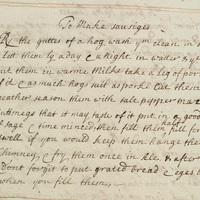 To Make sausiges
the gutts of a hog wash ym clean in
let them ly a day & a night in water & s
put them in warme milke take a leg of por
as much hogs suit as porke
season them with salt pepper mace
nutmegs that it may taste of it put in a good
of sage time minted then fill them full for
swell if you would keep them hange them
chimney & fry them once in Ale & after
dont forgit to put grated bread & eyes
when you fill them